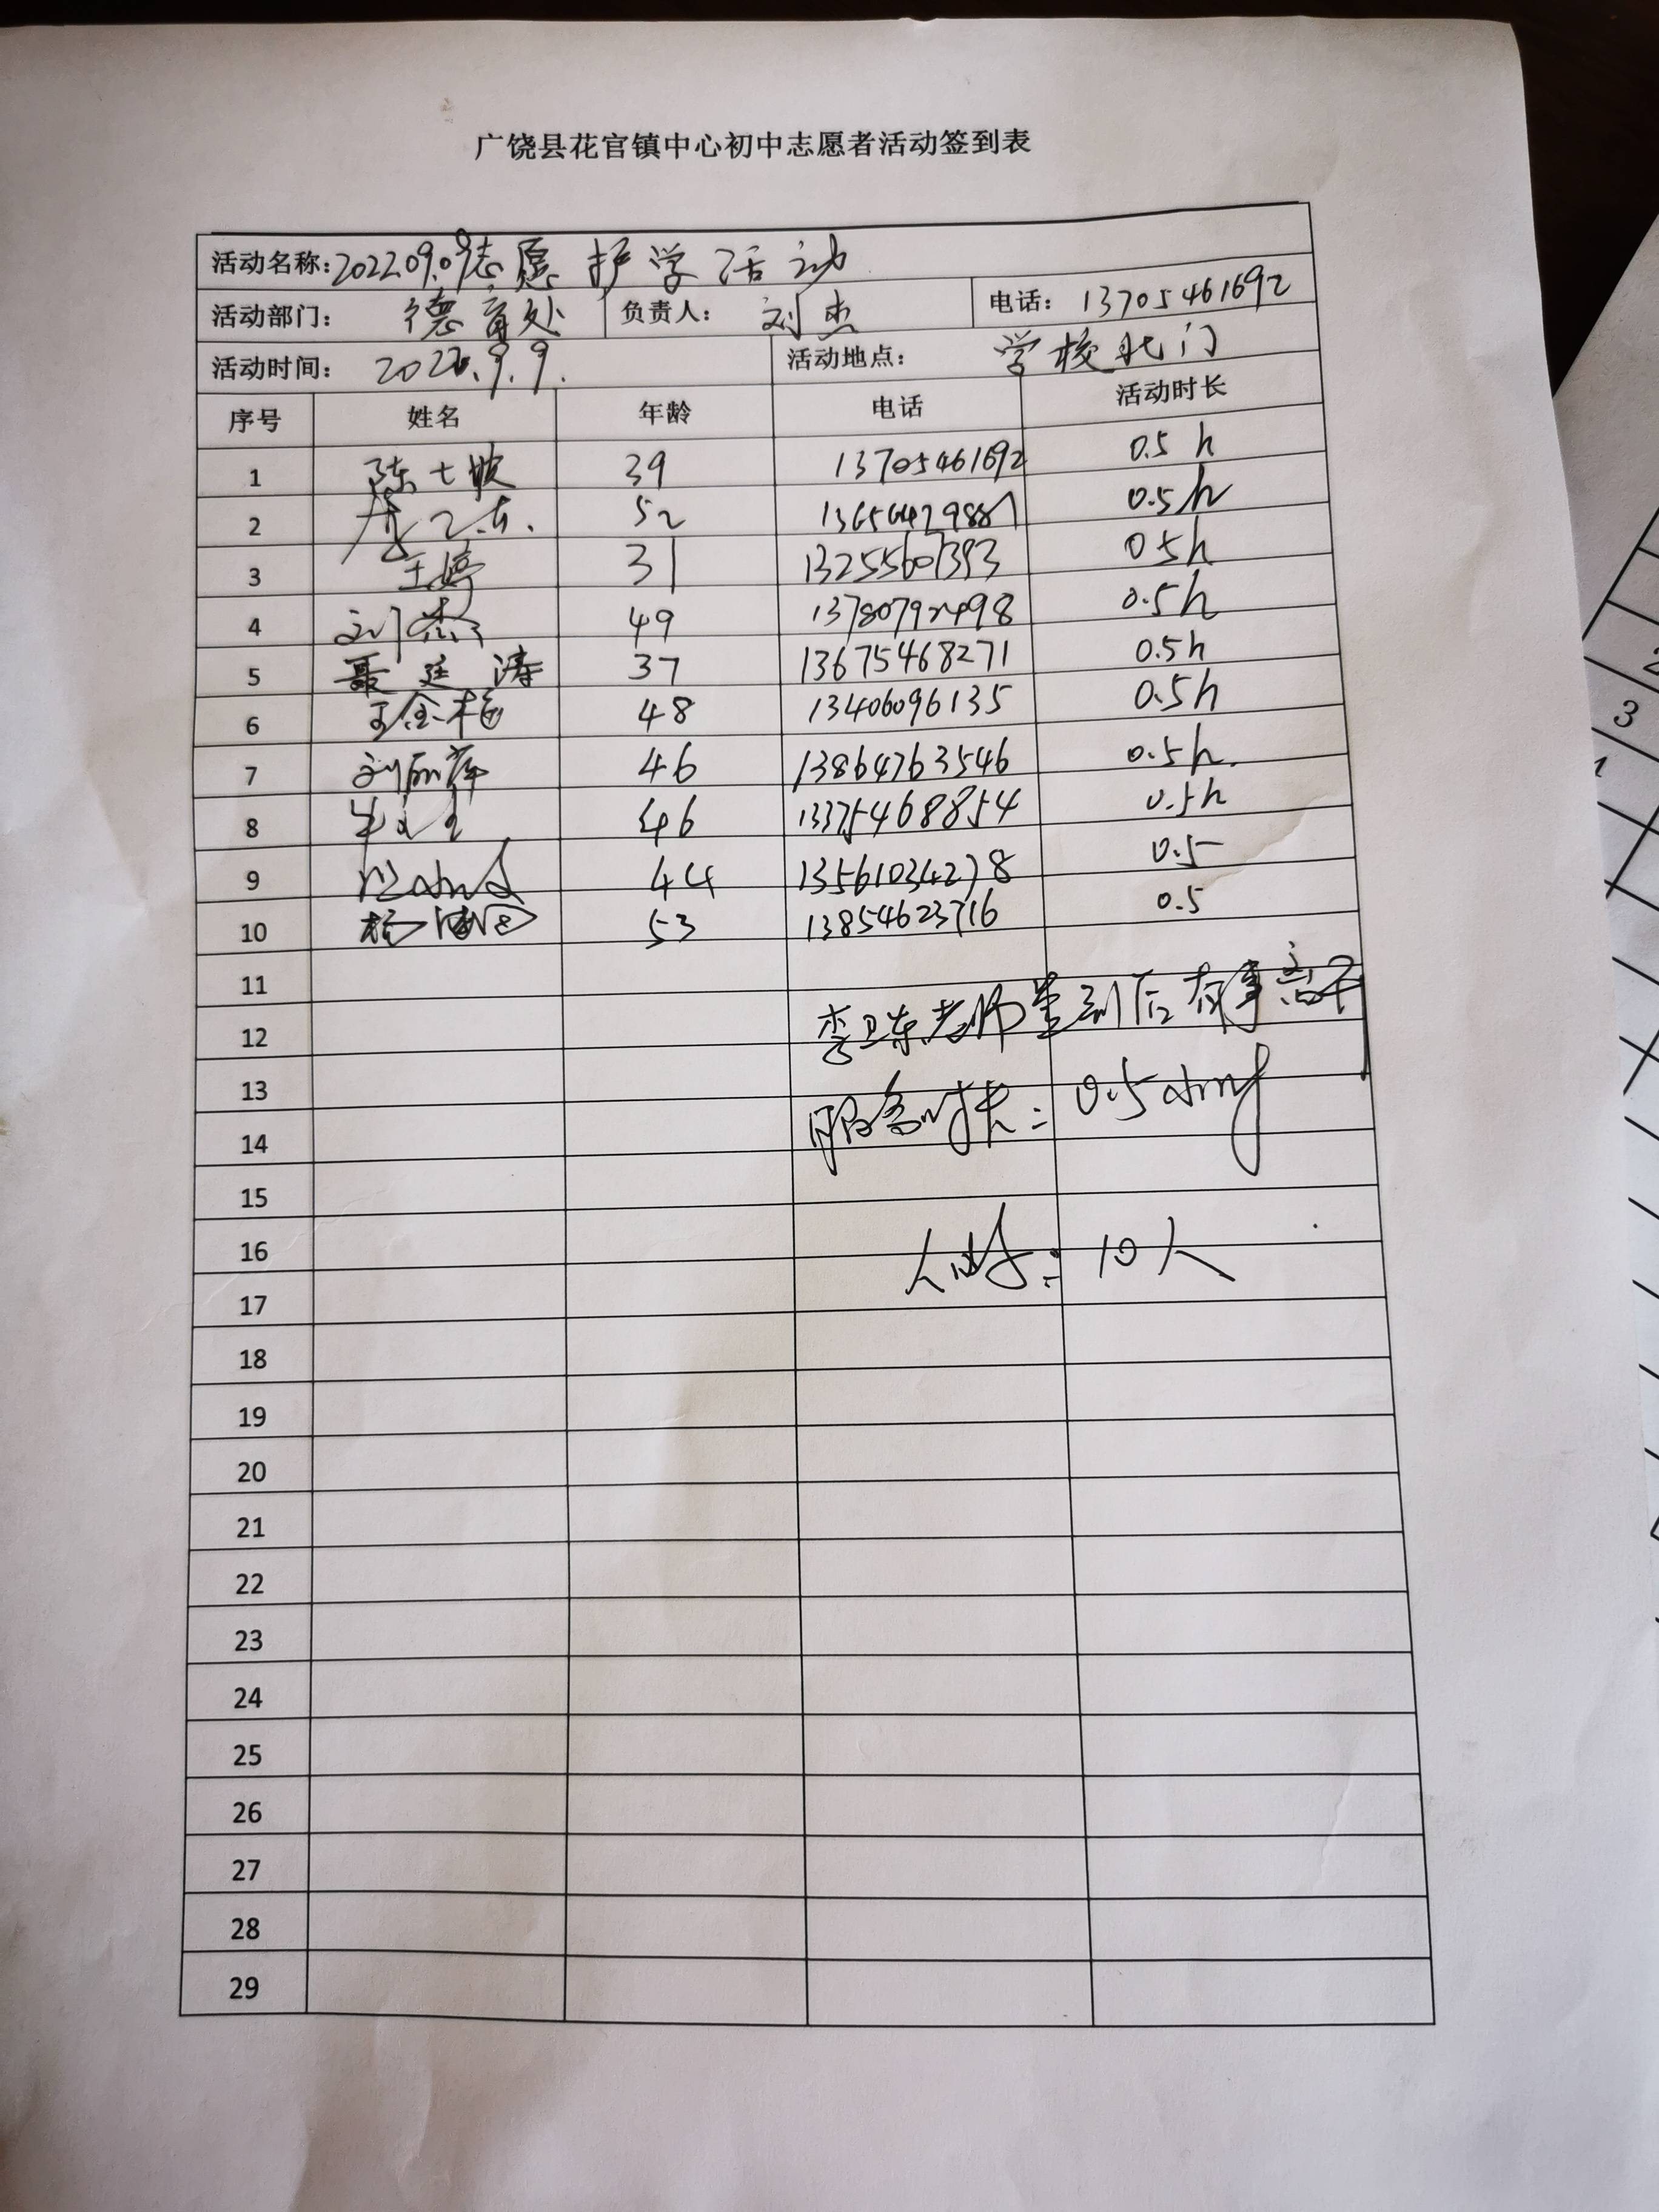 广饶县花官镇中心初中志愿者活动签到表
活动名称：2022.09.09志愿护学活动
活动部门： 德育处 负责人： 刘杰 电话： 13705461692
活动时间： 2022.9.9. 活动地点： 学校北门
序号 姓名 年龄 电话 活动时长
1 陈 39 13705461692 0.5 h
2 52 0.5h
3 王婷 31 13255601393 0.5h
4 刘杰 49 0.5h
5 聂廷涛 37 13675468271 0.5h
6 王金梅 48 13406096135 0.5h
7 刘丽萍 46 13864763546 0.5h.
8 46 13375468854 0.5h
9 44 13561034278 0.5
10 杨 53 13854623716 0.5
11
老师签到后有事离开
12
13
服务时长：0.5
14
15
16
人数：10人
17
18
19
20
21
22
23
24
25
26
27
28
29
3